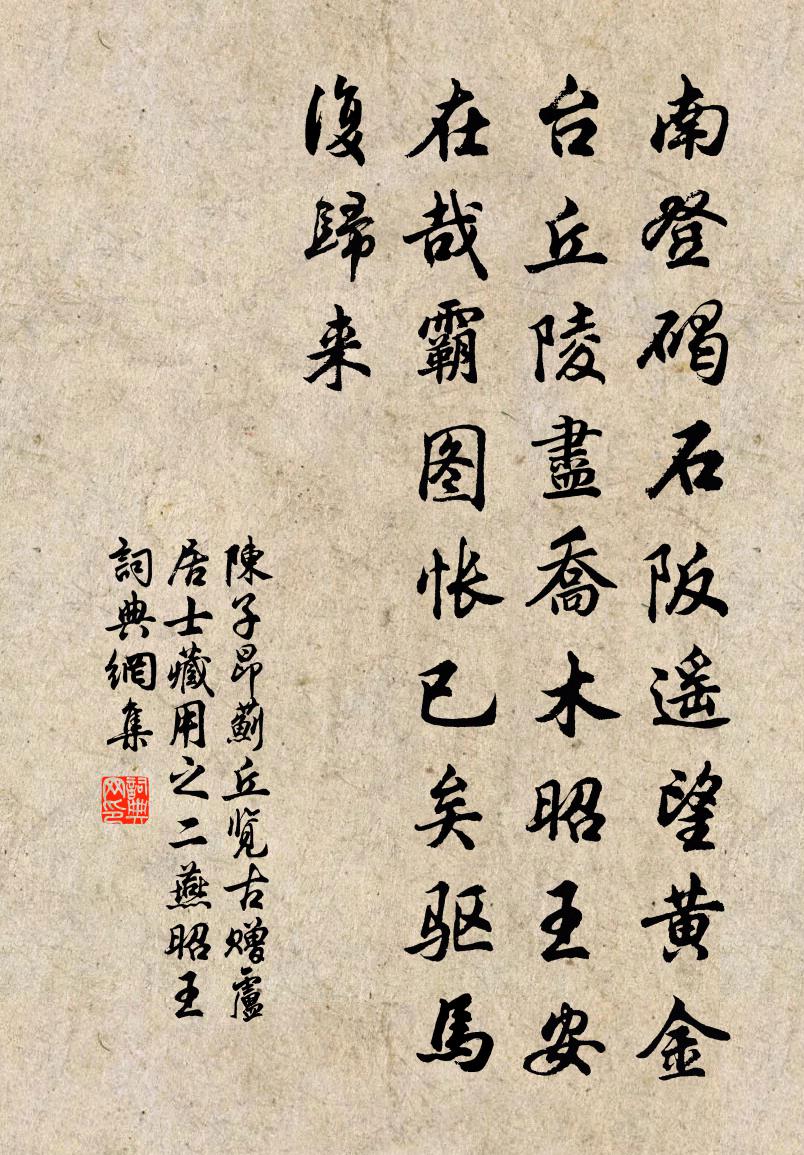 南登碣石阪遥望黄金
台丘陵盡喬木昭王安
在哉霸图怅已矣驱馬
復歸来
陳子昂薊丘览古赠盧
居士藏用之二燕昭王
詞典網集
詞典
网印